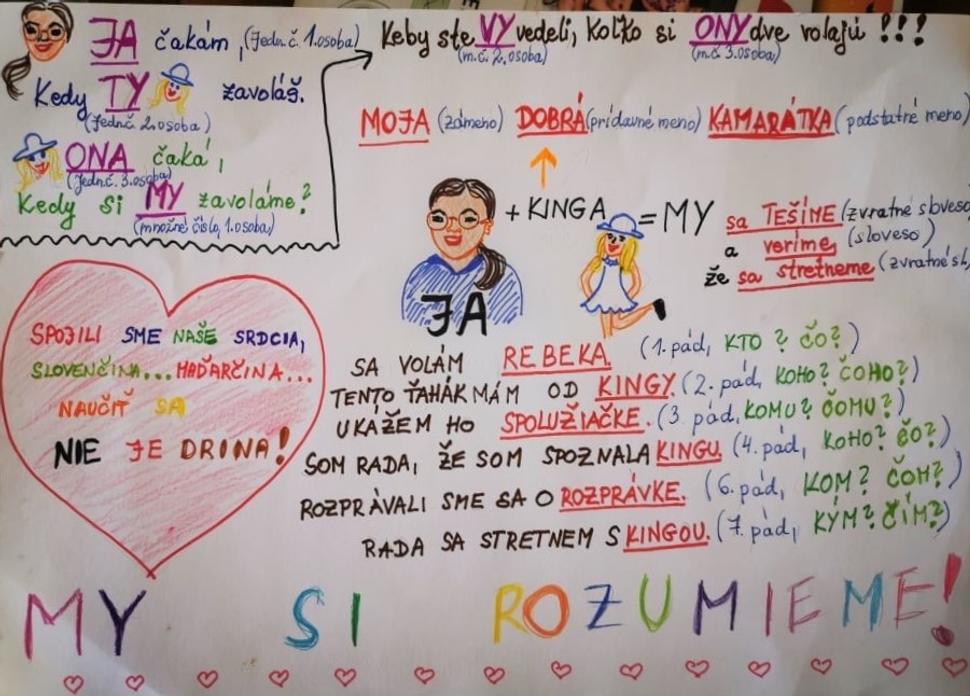 JA čakám, (Jedn. č. 1. osoba)
Kedy TY zavoláš.
(Jedn. č. 2. osoba)
ONA čaká,
(Jedn. č. 3. osoba)
Kedy si MY zavoláme?
(množné číslo, 1. osoba)
Keby ste VY vedeli, koľko si ONY dve volajú !!!
(m. č. 2. osoba) (m. č. 3. osoba)
MOJA (zámeno) DOBRÁ (prídavné meno) KAMARÁTKA (podstatné meno)
+ KINGA = MY sa TEŠÍME (zvratné sloveso
a veríme, (sloveso)
že sa stretneme (zvratné sl.
JA
SPOJILI SME NAŠE SRDCIA,
SLOVENČINA... MAĎARČINA...
NAUČIŤ SA
NIE JE DRINA!
SA VOLÁM REBEKA. (1. pád, KTO? ČO?)
TENTO ŤAHÁK MÁM OD KINGY. (2. pád, KOHO? ČOHO?)
UKÁŽEM HO SPOLUŽIAČKE. (3 pád, KOMU? ČOMU?)
SOM RADA, ŽE SOM SPOZNALA KINGU. (4. pád, KOHO? ČO?)
ROZPRÁVALI SME SA O ROZPRÁVKE. (6. pád, KOM? ČOM?)
RADA SA STRETNEM S KINGOU. (7. pád, KÝM? ČÍM?)
MY SI ROZUMIEME!